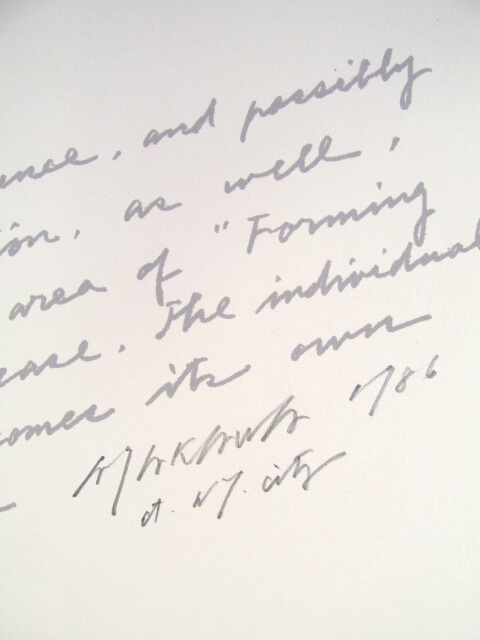 ence, and possibly
ion, as well,
area of "Forming
ease. The individual
comes its own
'86
at N.Y. city